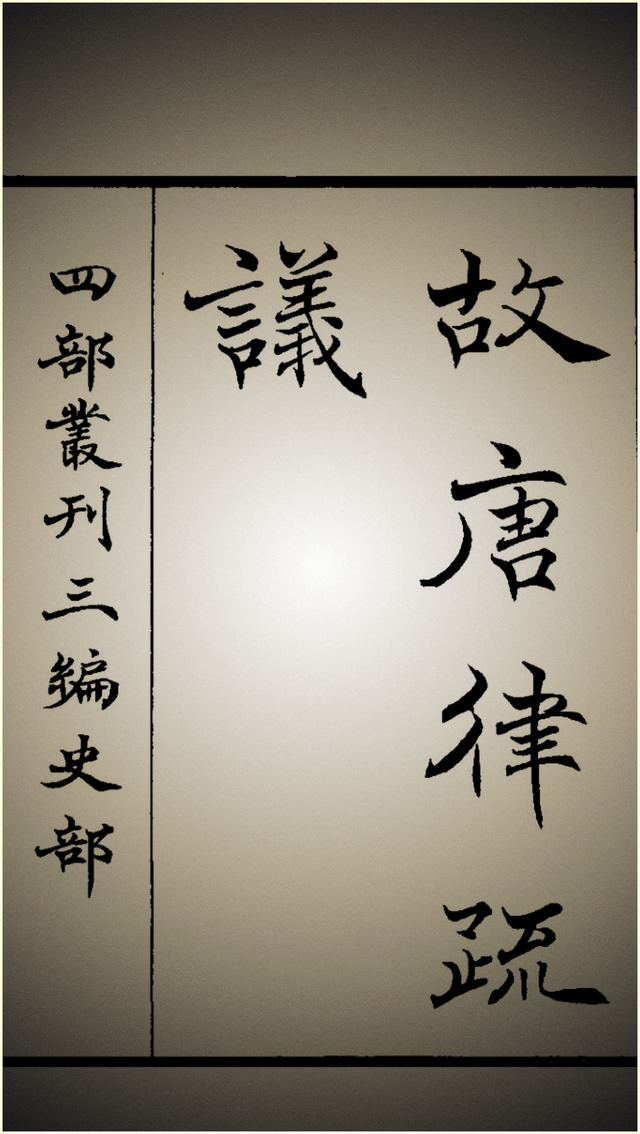 故唐律疏
議
四部叢刊三編史部